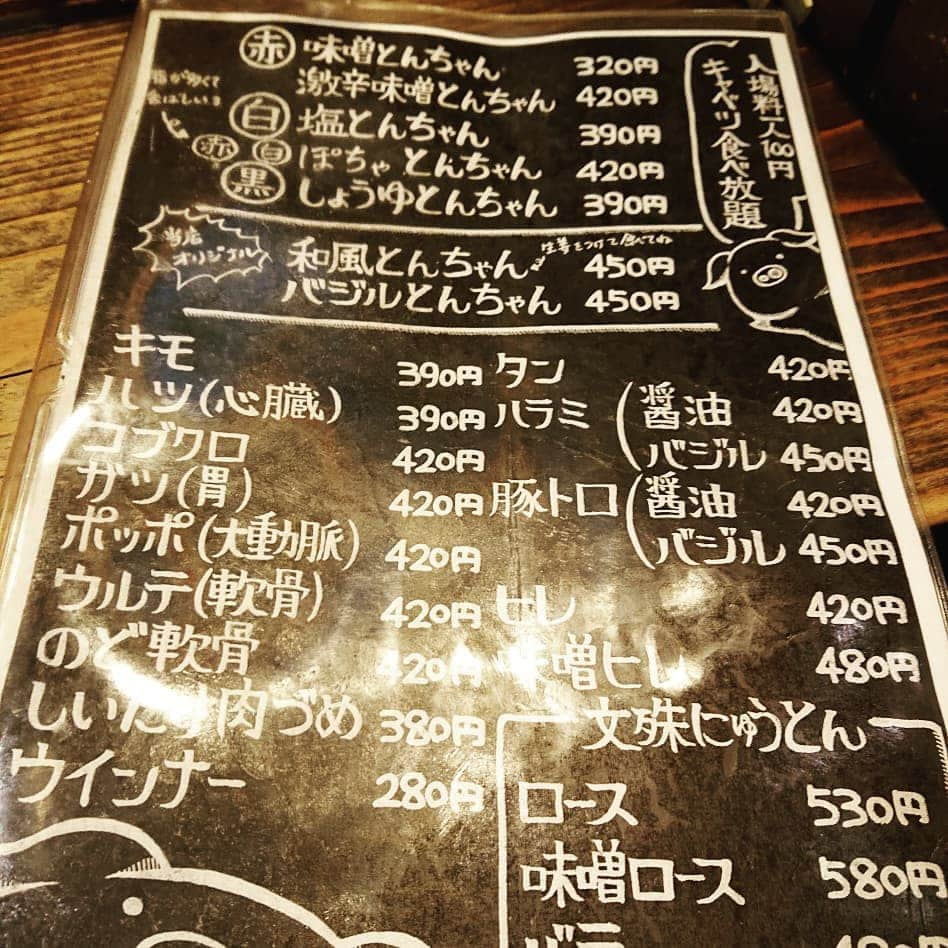 赤 味噌とんちゃん 320円
激辛味噌とんちゃん 420円
白 塩とんちゃん 390円
赤 白 ぽちゃとんちゃん 420円
黒 しょうゆとんちゃん 390円
入場料一人100円
キャベツ食べ放題
当店オリジナル
和風とんちゃん 生姜をつけて食べてね 450円
バジルとんちゃん 450円
キモ 390円
ハツ(心臓) 390円
コブクロ 420円
ガツ(胃) 420円
ポッポ(大動脈) 420円
ウルテ(軟骨) 420円
のど軟骨 420円
しいたけ肉づめ 380円
ウインナー 280円
タン 420円
ハラミ(醤油 420円
バジル 450円
豚トロ(醤油 420円
バジル 450円
ヒレ 420円
味噌ヒレ 480円
文殊にゅうとん
ロース 530円
味噌ロース 580円
バラ